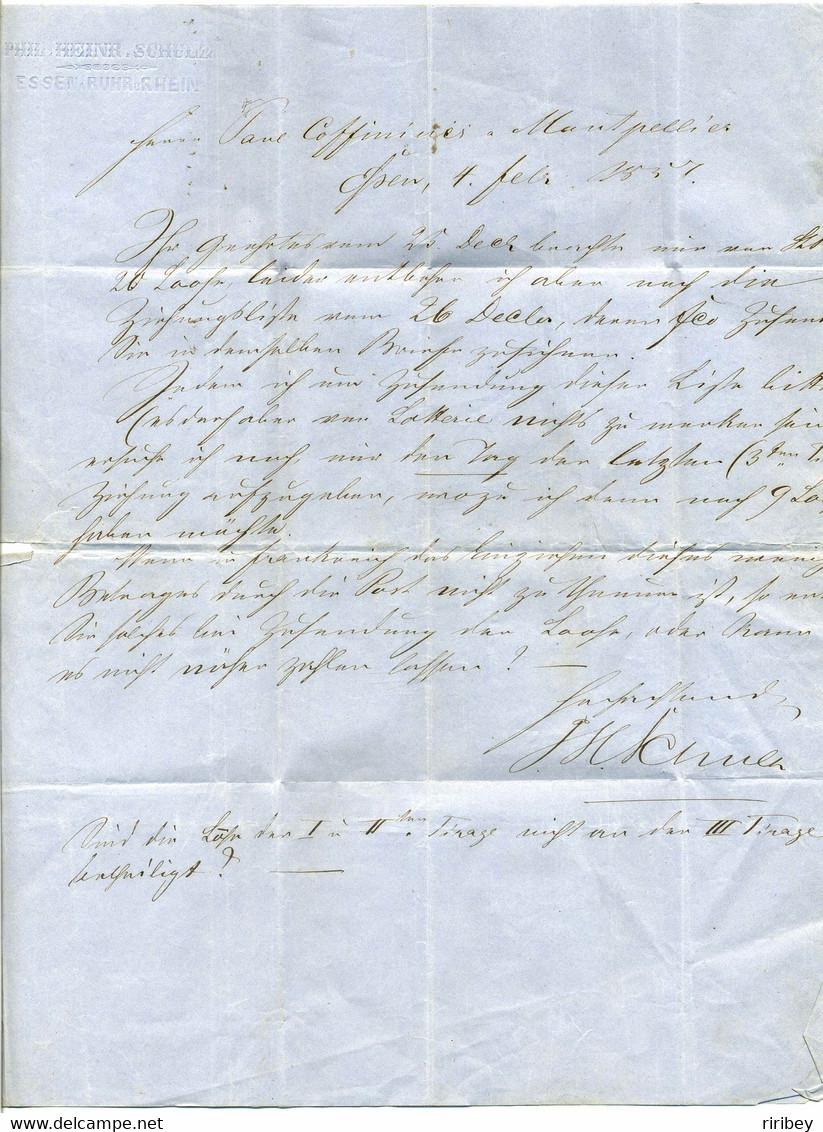 PHIL. HEINR. SCHULZ
ESSEN A/RUHR & RHEIN
Herrn Coffinières a Montpellier
Essen, 4. Febr. 1857.
Ihr Geehrtes vom 25. Decbr brachte mir nur
20 Loose, leider entbehre ich aber noch die
Ziehungsliste vom 26 Decbr, deren fco
Sie in demselben Briefe zusichern.
Indem ich um Zusendung dieser Liste
(es darf aber von Lotterie nichts zu merken sein
ersuche ich noch, mir den Tag der letzten (3ten
Ziehung aufzugeben, wozu ich denn noch 9
haben möchte.
Wenn in Frankreich das Einziehen dieses
Betrages durch die Post nicht zu theuer ist, so
Sie solches bei Zusendung der Loose, oder kann
es nicht näher zahlen lassen? —
Hochachtend
Sind die Loose der I u IIten Tirage nicht an der III Tirage
betheiligt? —
riribey